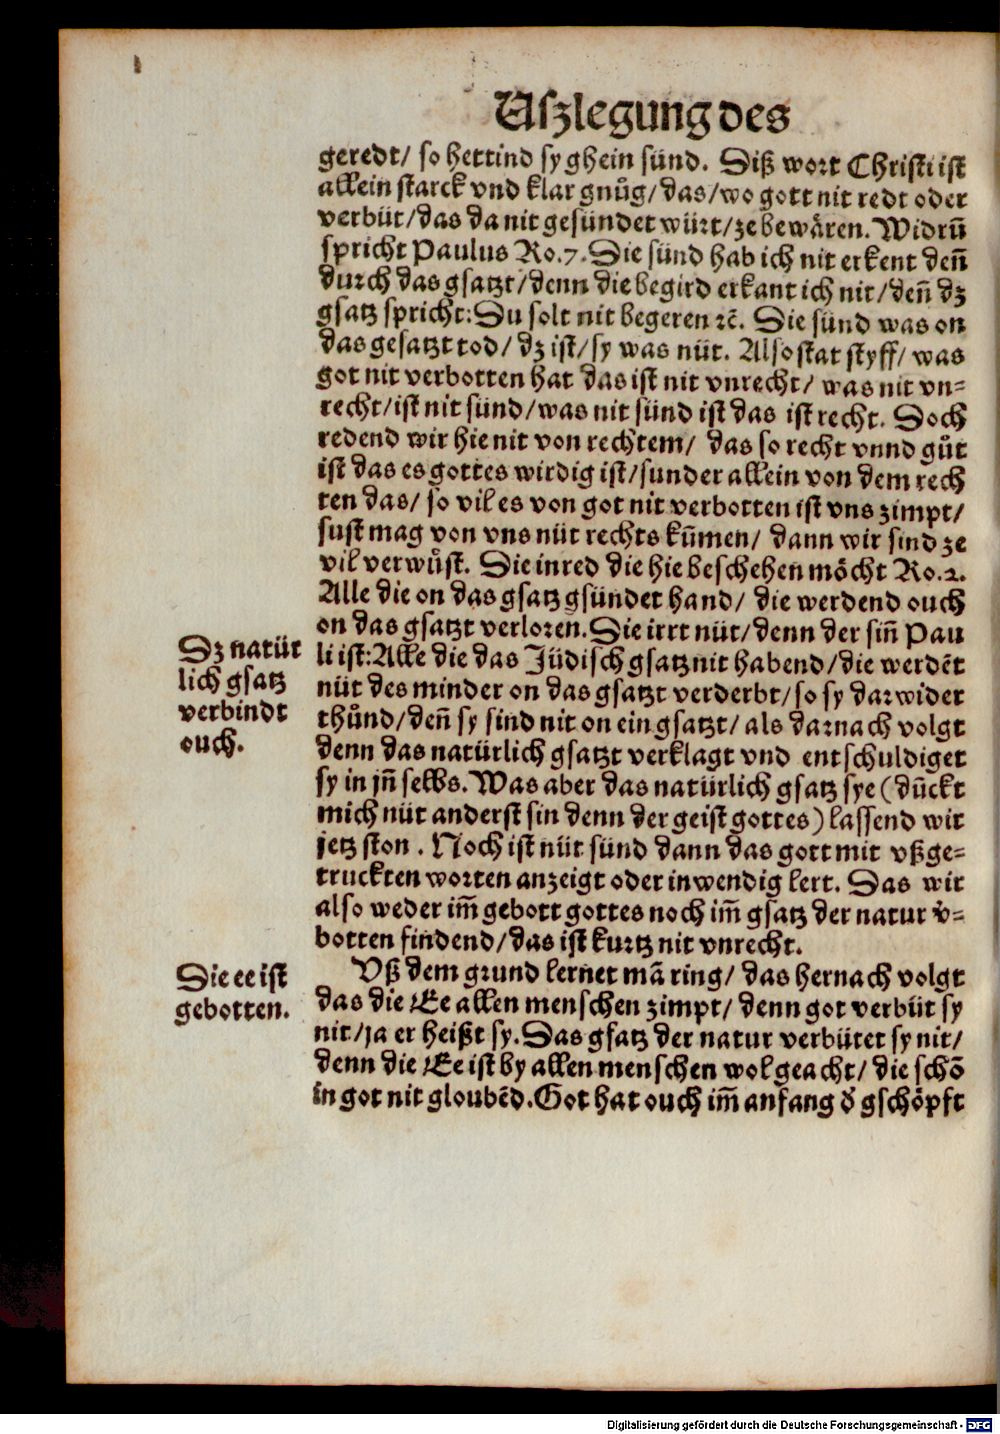 Uſzlegung des
geredt/ ſo hettind ſy ghein ſünd. Diß wort Chriſti iſt
allein ſtarck vnd klar gnuͦg/das/wo gott nit redt oder
verbüt/das da nit geſündet würt/ze bewären. Widrū
ſpricht Paulus Ro.7. Die ſünd hab ich nit erkent deñ
durch das gſatzt/denn die begird erkant ich nit/deñ dz
gſatz ſpricht: Du ſolt nit begeren ꝛc̄. Die ſünd was on
das geſatzt tod/ dz iſt/ſy was nüt. Alſo ſtat ſtyff/ was
got nit verbotten hat das iſt nit vnrecht/ was nit vn⸗
recht/iſt nit ſünd/was nit ſünd iſt das iſt recht. Doch
redend wir hie nit von rechtem/ das ſo recht vnnd guͦt
iſt das es gottes wirdig iſt/ſunder allein von dem rech
ten das/ ſo vil es von got nit verbotten iſt vns zimpt/
ſuſt mag von vns nüt rechts kum̄en/ dann wir ſind ze
vil verwuͤſt. Die inred die hie beſchehen möcht Ro.2.
Alle die on das gſatz gſündet hand/ die werdend ouch
on das gſatzt verloren. Die irrt nüt/denn der ſiñ Pau
Dz natüt
li iſt: Alle die das Jüdiſch gſatz nit habend/die werdēt
lich gſatz
nüt des minder on das gſatzt verderbt/ſo ſy darwider
verbindt
thuͦnd/deñ ſy ſind nit on ein gſatzt/ als darnach volgt
ouch.
denn das natürlich gſatzt verklagt vnd entſchuldiget
ſy in jñ ſelbs. Was aber das natürlich gſatz ſye (dūckt
mich nüt anderſt ſin denn der geiſt gottes) laſſend wir
jetz ſton. Noch iſt nüt ſünd dann das gott mit vßge⸗
truckten worten anzeigt oder inwendig lert. Das wir
alſo weder im̄ gebott gottes noch im̄ gſatz der natur v̓⸗
botten findend/das iſt kurtz nit vnrecht.
Die ee iſt
Vß dem grund lernet mā ring/ das hernach volgt
gebotten.
das die Ee allen menſchen zimpt/ denn got verbüt ſy
nit/ja er heißt ſy. Das gſatz der natur verbütet ſy nit/
denn die Ee iſt by allen menſchen wol geacht/ die ſchō
in got nit gloubēd. Got hat ouch im̄ anfang d̓ gſchöpft
Digitalisierung gefördert durch die Deutsche Forschungsgemeinschaft - DFG